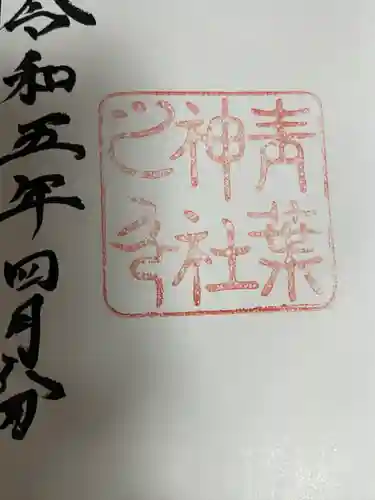 青葉
神社
之印
令和五年四月